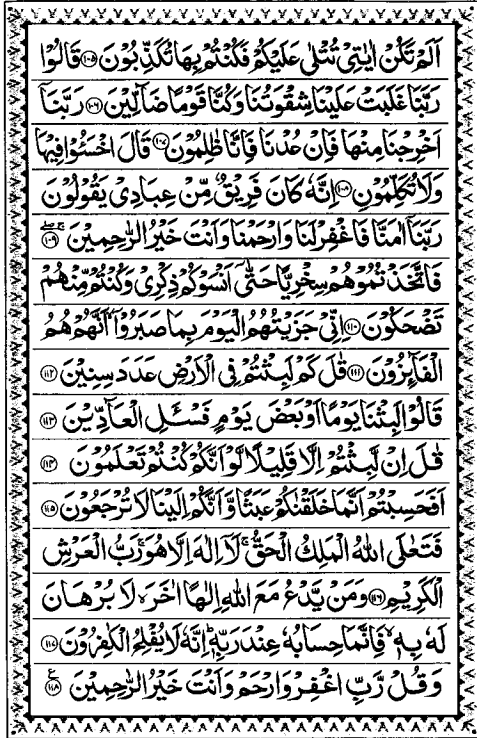 اَلَمْ تَكُنْ اٰيٰتِىْ تُتْلٰى عَلَيْكُمْ فَكُنْتُمْ بِهَا تُكَذِّبُوْنَ ﴿۱۰۵﴾ قَالُوْا
رَبَّنَا غَلَبَتْ عَلَيْنَا شِقْوَتُنَا وَكُنَّا قَوْمًا ضَآلِّيْنَ ﴿۱۰۶﴾ رَبَّنَآ
اَخْرِجْنَا مِنْهَا فَاِنْ عُدْنَا فَاِنَّا ظٰلِمُوْنَ ﴿۱۰۷﴾ قَالَ اخْسَئُوْا فِيْهَا
وَلَا تُكَلِّمُوْنِ ﴿۱۰۸﴾ اِنَّهٗ كَانَ فَرِيْقٌ مِّنْ عِبَادِىْ يَقُوْلُوْنَ
رَبَّنَآ اٰمَنَّا فَاغْفِرْ لَنَا وَارْحَمْنَا وَاَنْتَ خَيْرُ الرّٰحِمِيْنَ ﴿۱۰۹﴾
فَاتَّخَذْتُمُوْهُمْ سِخْرِيًّا حَتّٰٓى اَنْسَوْكُمْ ذِكْرِىْ وَكُنْتُمْ مِّنْهُمْ
تَضْحَكُوْنَ ﴿۱۱۰﴾ اِنِّىْ جَزَيْتُهُمُ الْيَوْمَ بِمَا صَبَرُوْٓا اَنَّهُمْ هُمُ
الْفَآئِزُوْنَ ﴿۱۱۱﴾ قٰلَ كَمْ لَبِثْتُمْ فِى الْاَرْضِ عَدَدَ سِنِيْنَ ﴿۱۱۲﴾
قَالُوْا لَبِثْنَا يَوْمًا اَوْ بَعْضَ يَوْمٍ فَسْئَلِ الْعَآدِّيْنَ ﴿۱۱۳﴾
قٰلَ اِنْ لَّبِثْتُمْ اِلَّا قَلِيْلًا لَّوْ اَنَّكُمْ كُنْتُمْ تَعْلَمُوْنَ ﴿۱۱۴﴾
اَفَحَسِبْتُمْ اَنَّمَا خَلَقْنٰكُمْ عَبَثًا وَّاَنَّكُمْ اِلَيْنَا لَا تُرْجَعُوْنَ ﴿۱۱۵﴾
فَتَعٰلَى اللّٰهُ الْمَلِكُ الْحَقُّ ۚ لَآ اِلٰهَ اِلَّا هُوَ ۚ رَبُّ الْعَرْشِ
الْكَرِيْمِ ﴿۱۱۶﴾ وَمَنْ يَّدْعُ مَعَ اللّٰهِ اِلٰهًا اٰخَرَ ۙ لَا بُرْهَانَ
لَهٗ بِهٖ ۙ فَاِنَّمَا حِسَابُهٗ عِنْدَ رَبِّهٖ ؕ اِنَّهٗ لَا يُفْلِحُ الْكٰفِرُوْنَ ﴿۱۱۷﴾
وَقُلْ رَّبِّ اغْفِرْ وَارْحَمْ وَاَنْتَ خَيْرُ الرّٰحِمِيْنَ ﴿۱۱۸﴾ ع